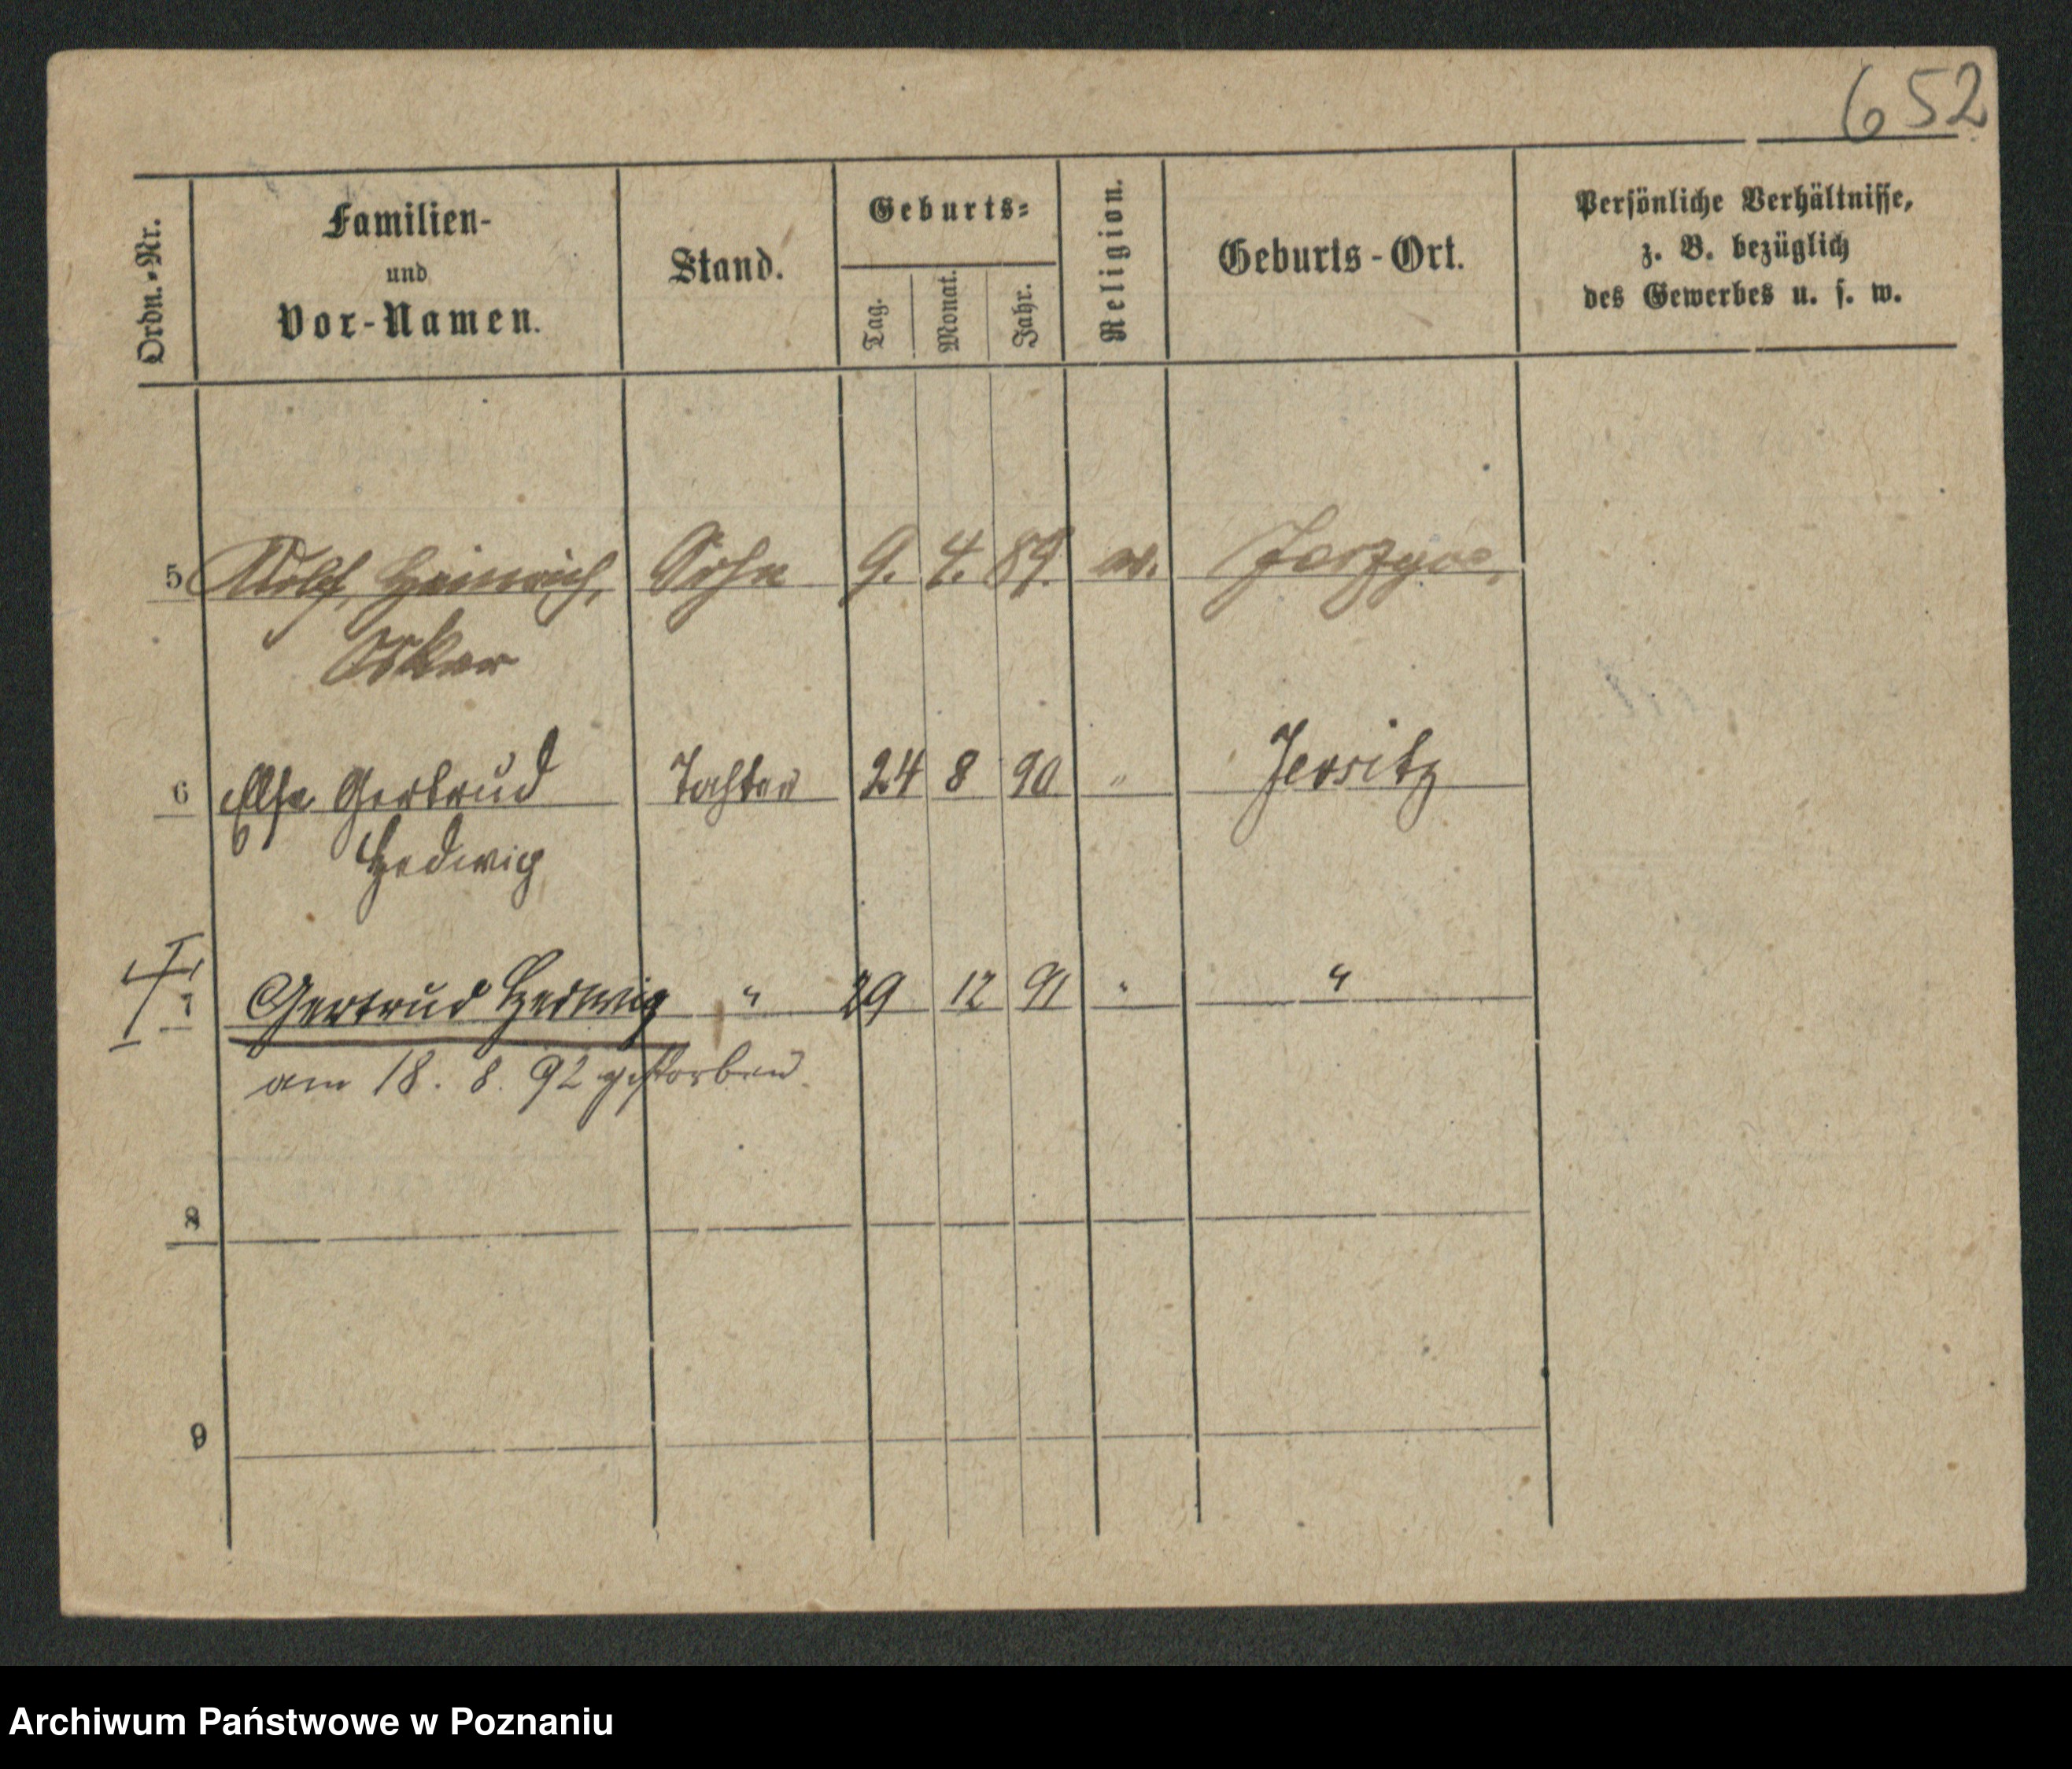 652
Ordn.-Nr.
Familien-
und
Vor-Namen.
Stand.
Geburts-
Tag.
Monat.
Jahr.
Religion.
Geburts-Ort.
Persönliche Verhältnisse,
z. B. bezüglich
des Gewerbes u. s. w.
5 Adolf, Heinrich, Sohn 9. 4. 89.
Oskar
6 Else Gertrud Tochter 24 8 90 " Jersitz
Hedwig
7 Gertrud Hedwig " 29 12 91 " "
am 18. 8. 92 gestorben
8
9
Archiwum Państwowe w Poznaniu